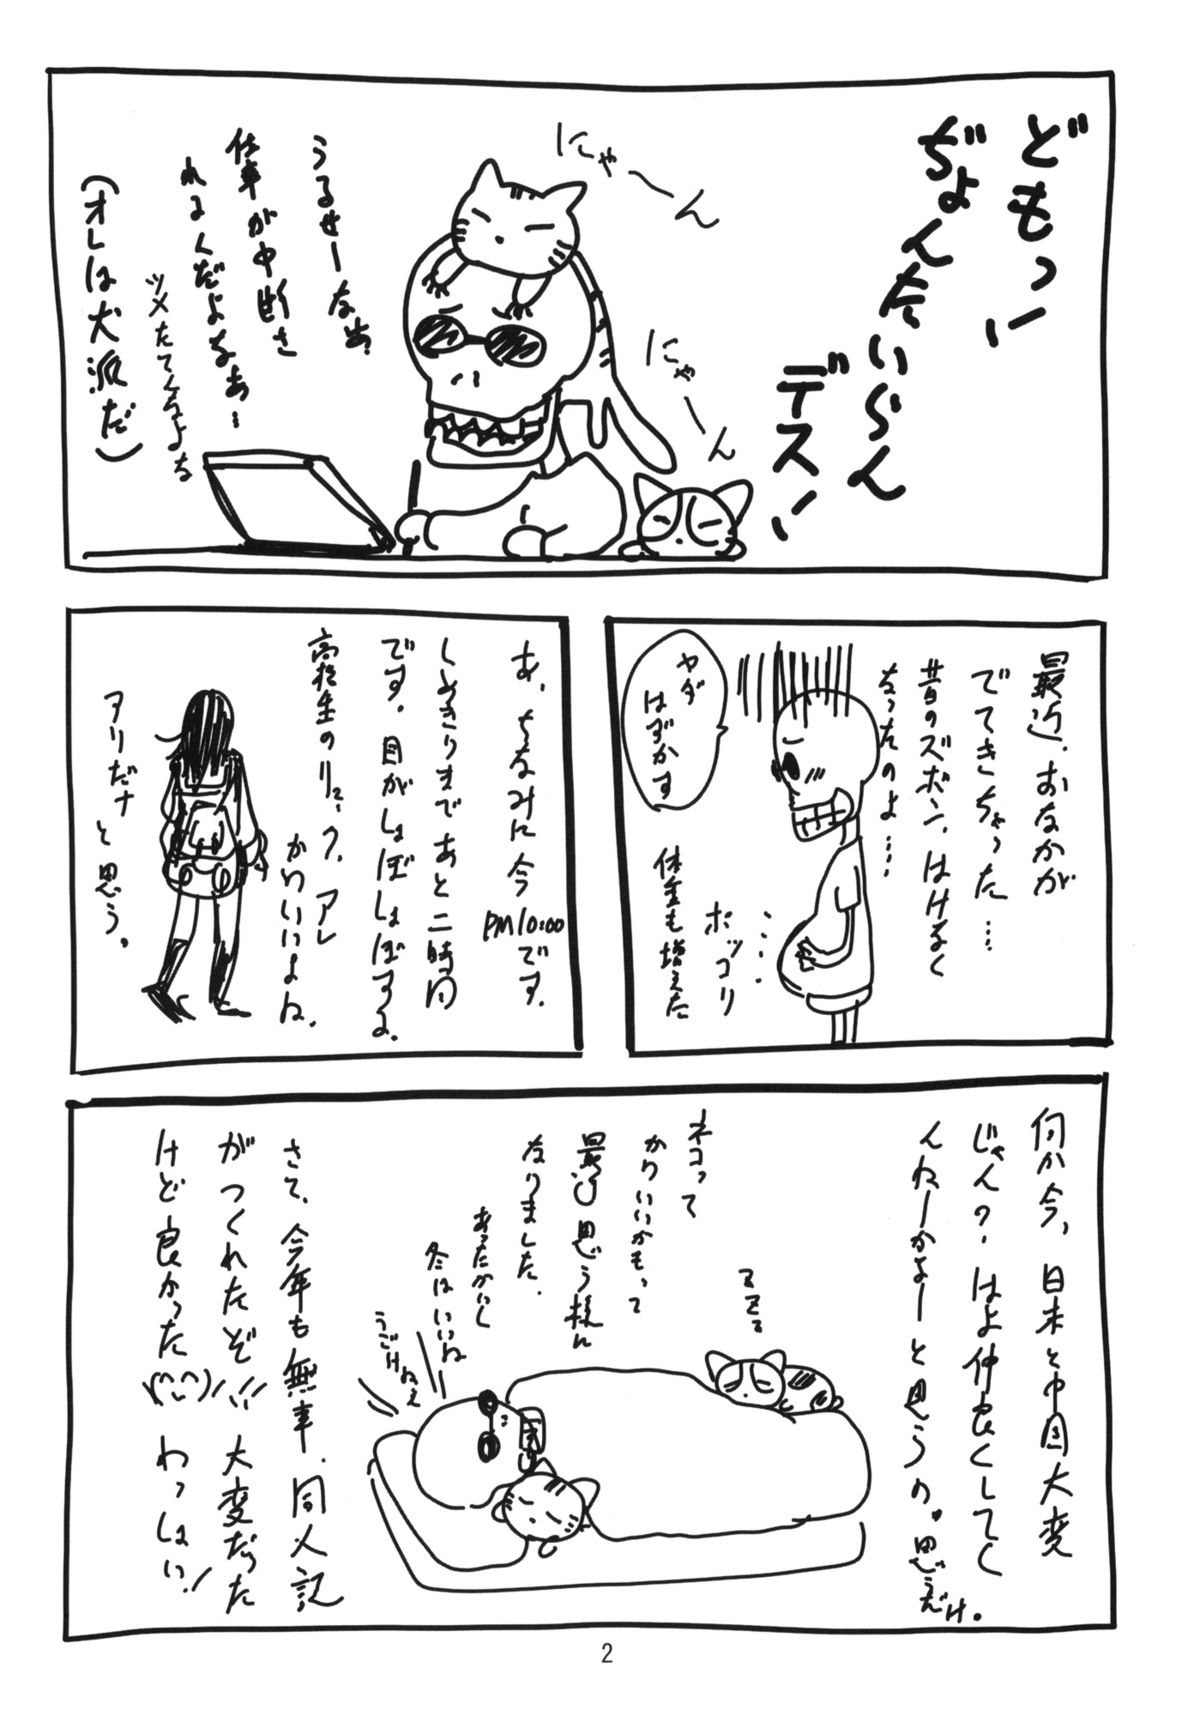 どもっ!
ぢょんたいらん
デス!
にゃーん
にゃーん
うるせーなあ
仕事が中断さ
れるんだよなあ…
ツメたてんなよな
(オレは犬派だ)
最近、おなかが
でてきちゃった…
昔のズボン、はけなく
なったのよ…
ヤダ
はずかす
ポッコリ
体重も増えた
あ、ちなみに今
PM10:00です。
しめきりまであと二時間
です。目がしょぼしょぼするよ。
高校生のリュック、アレ
かわいいよね。
アリだナ
と思う。
何か今、日本と中国大変
じゃん?はよ仲良くしてく
んねーかなーと思うの。思うだけ。
ネコって
かわいいかもって
最近思う様に
なりました。
あったかいし
冬はいいね
うごけねぇ
さて、今年も無事、同人誌
がつくれたぞ!!大変だった
けど良かった\(^^)/わっしょい!
2